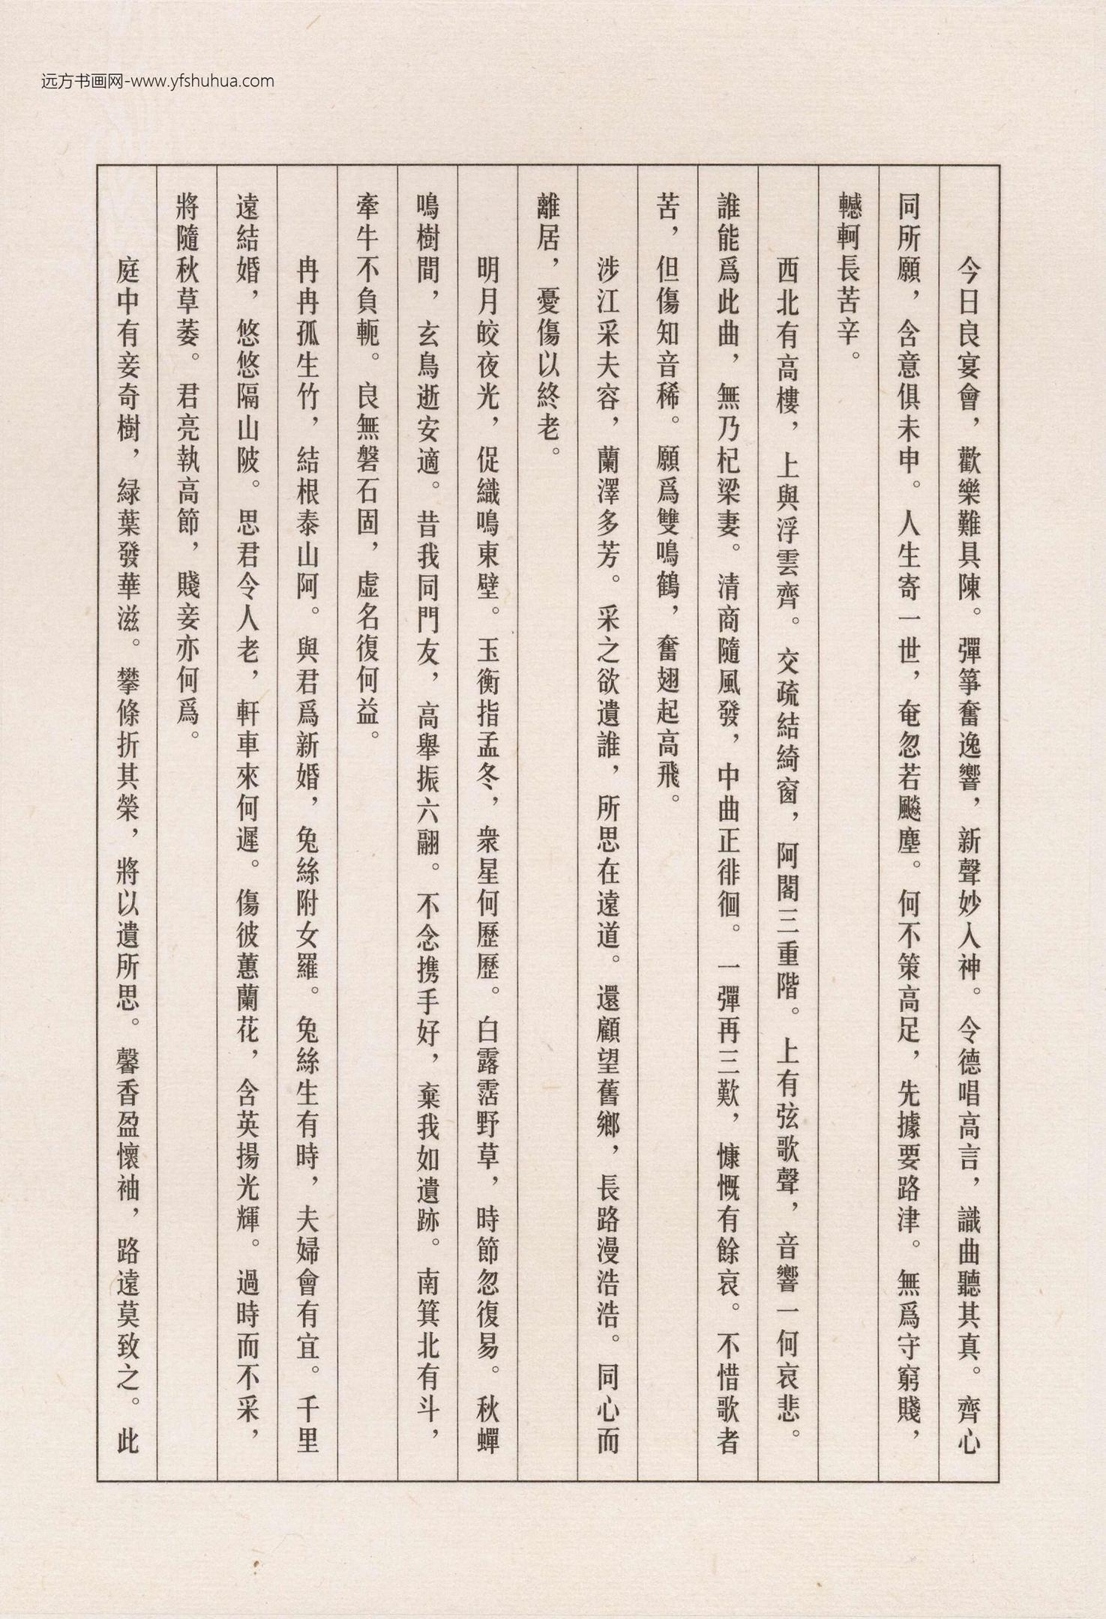 远方书画网-www.yfshuhua.com
今日良宴會，歡樂難具陳。彈箏奮逸響，新聲妙入神。令德唱高言，識曲聽其真。齊心
同所願，含意俱未申。人生寄一世，奄忽若飈塵。何不策高足，先據要路津。無爲守窮賤，
轗軻長苦辛。
西北有高樓，上與浮雲齊。交疏結綺窗，阿閣三重階。上有弦歌聲，音響一何哀悲。
誰能爲此曲，無乃杞梁妻。清商隨風發，中曲正徘徊。一彈再三歎，慷慨有餘哀。不惜歌者
苦，但傷知音稀。願爲雙鳴鶴，奮翅起高飛。
涉江采夫容，蘭澤多芳。采之欲遺誰，所思在遠道。還顧望舊鄉，長路漫浩浩。同心而
離居，憂傷以終老。
明月皎夜光，促織鳴東壁。玉衡指孟冬，衆星何歷歷。白露霑野草，時節忽復易。秋蟬
鳴樹間，玄鳥逝安適。昔我同門友，高舉振六翮。不念携手好，棄我如遺跡。南箕北有斗，
牽牛不負軛。良無磐石固，虛名復何益。
冉冉孤生竹，結根泰山阿。與君爲新婚，兔絲附女羅。兔絲生有時，夫婦會有宜。千里
遠結婚，悠悠隔山陂。思君令人老，軒車來何遲。傷彼蕙蘭花，含英揚光輝。過時而不采，
將隨秋草萎。君亮執高節，賤妾亦何爲。
庭中有妾奇樹，緑葉發華滋。攀條折其榮，將以遺所思。馨香盈懷袖，路遠莫致之。此